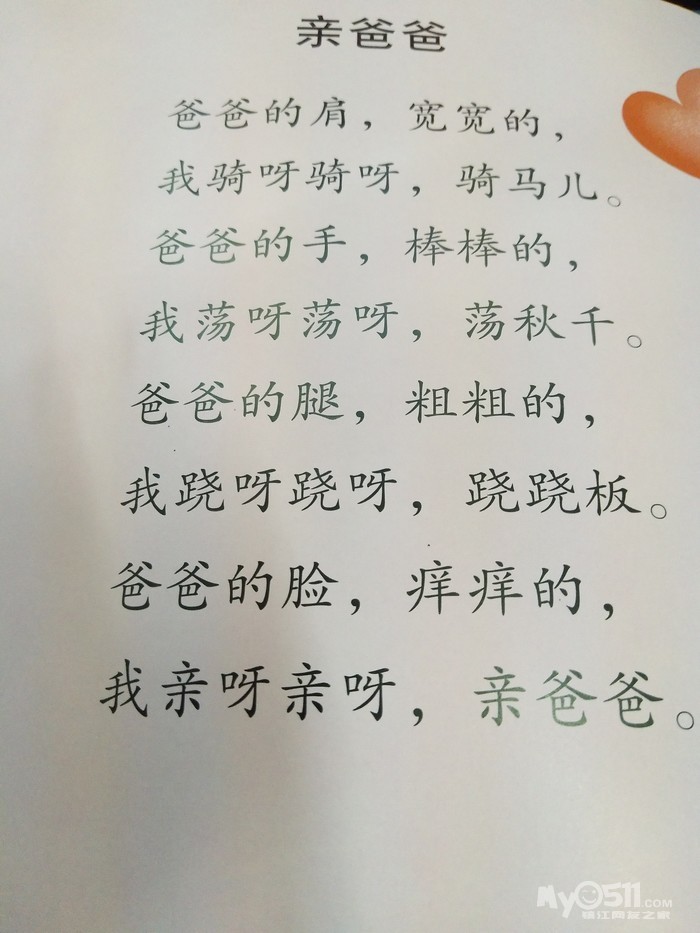 亲爸爸
爸爸的肩，宽宽的，
我骑呀骑呀，骑马儿。
爸爸的手，棒棒的，
我荡呀荡呀，荡秋千。
爸爸的腿，粗粗的，
我跷呀跷呀，跷跷板。
爸爸的脸，痒痒的，
我亲呀亲呀，亲爸爸。
My0511.COM
镇江网友之家